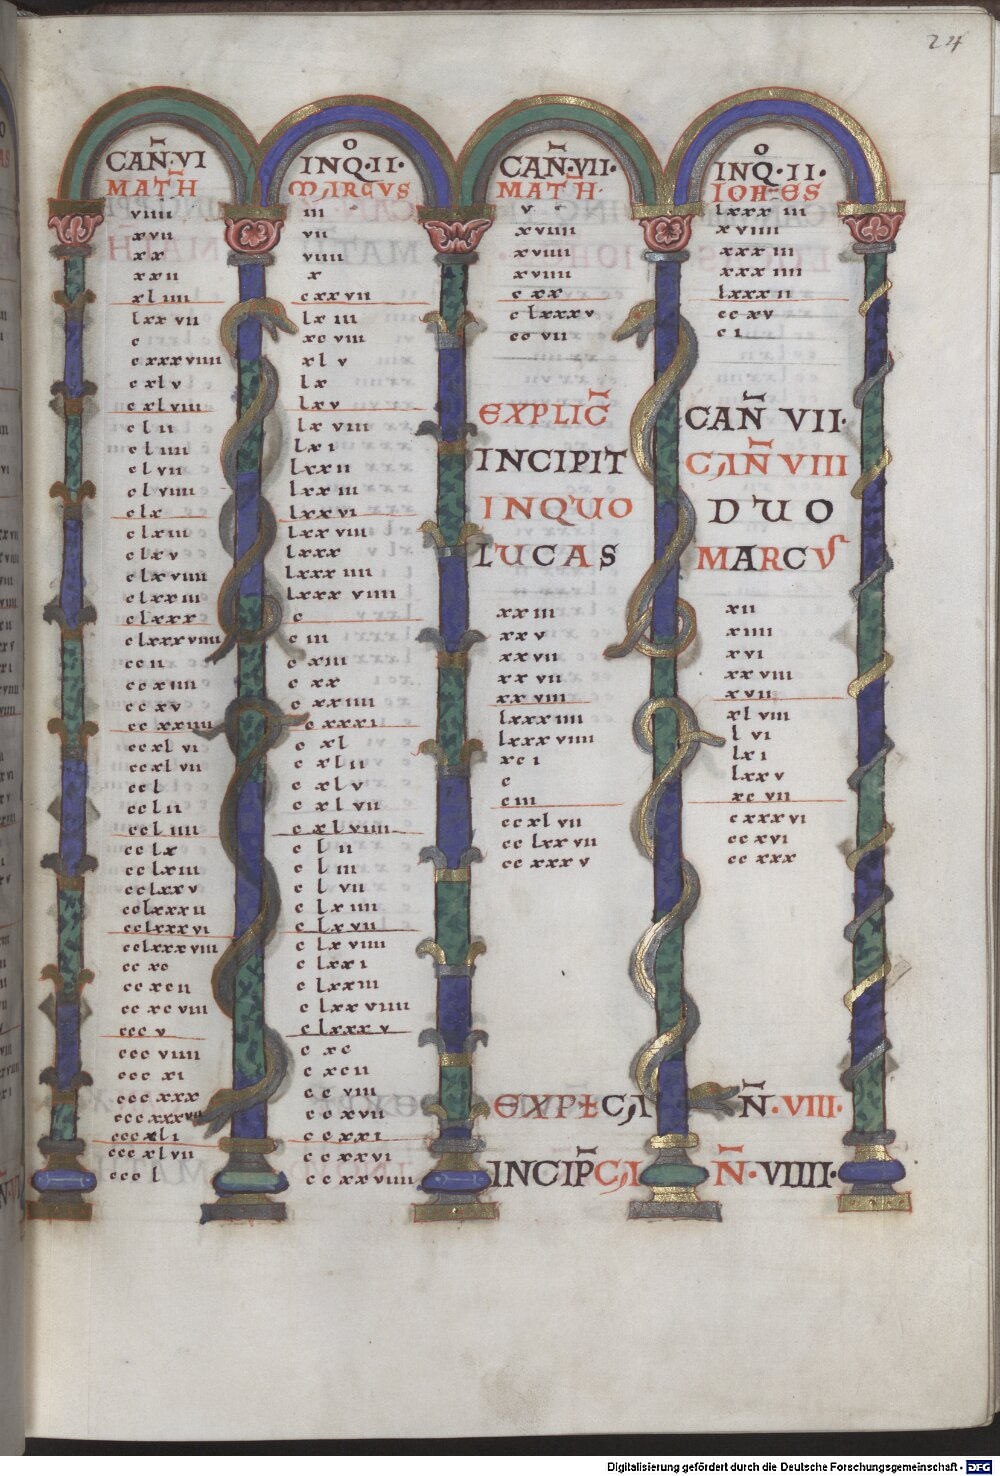 24
CAN̄·VI
MATH̄
viiii
xvii
xx
xxii
xliiii
lxxvii
c
cxxxviiii
cxlv
cxlviii
clii
cliiii
clvii
clviiii
clx
clxiii
clxv
clxviiii
clxxiii
clxxx
clxxxviiii
ccii
ccxiiii
ccxv
ccxxiiii
ccxlvi
ccxlvii
ccl
cclii
ccliiii
cclx
cclxiii
cclxxv
cclxxxii
cclxxxvi
cclxxxviii
ccxc
ccxcii
ccxcviii
cccv
cccviiii
cccxi
cccxxx
cccxli
cccxlvii
cccl
INQͦ·II·
MARCVS
iii
vii
viiii
x
cxxvii
lxiii
xcviii
xlv
lx
lxv
lxviii
lxi
lxxii
lxxiii
lxxvi
lxxviii
lxxx
lxxxiiii
lxxxviiii
c
ciii
cxiii
cxx
cxxiiii
cxxxi
cxl
cxlii
cxlv
cxlvii
cxlviiii
clii
cliii
clvii
clxiiii
clxvii
clxviiii
clxxi
clxxiii
clxxviiii
clxxxv
cxc
cxcii
ccviii
ccxvii
ccxxi
ccxxvi
ccxxviiii
CAN̄·VII·
MATH̄·
v
xviiii
xviiii
xviiii
cxx
clxxxv
ccvii
INQͦ·II·
IOH̄ES
lxxxiii
xviiii
xxxiii
xxxiiii
lxxxii
ccxv
ci
EXPLIC̄ CAN̄ VII·
INCIPIT CAN̄ VIII
INQUO DUO
LUCAS MARCVS
xxiii
xxv
xxvii
xxvii
xxviii
lxxxiiii
lxxxviiii
xci
c
ciii
ccxlvii
cclxxvii
ccxxxv
xii
xiiii
xvi
xxviii
xvii
xlviii
lvi
lxi
lxxv
xcvii
cxxxvi
ccxvi
ccxxx
EXPŁ CAN̄·VIII·
INCIP̄ CAN̄·VIIII·
Digitalisierung gefördert durch die Deutsche Forschungsgemeinschaft - DFG